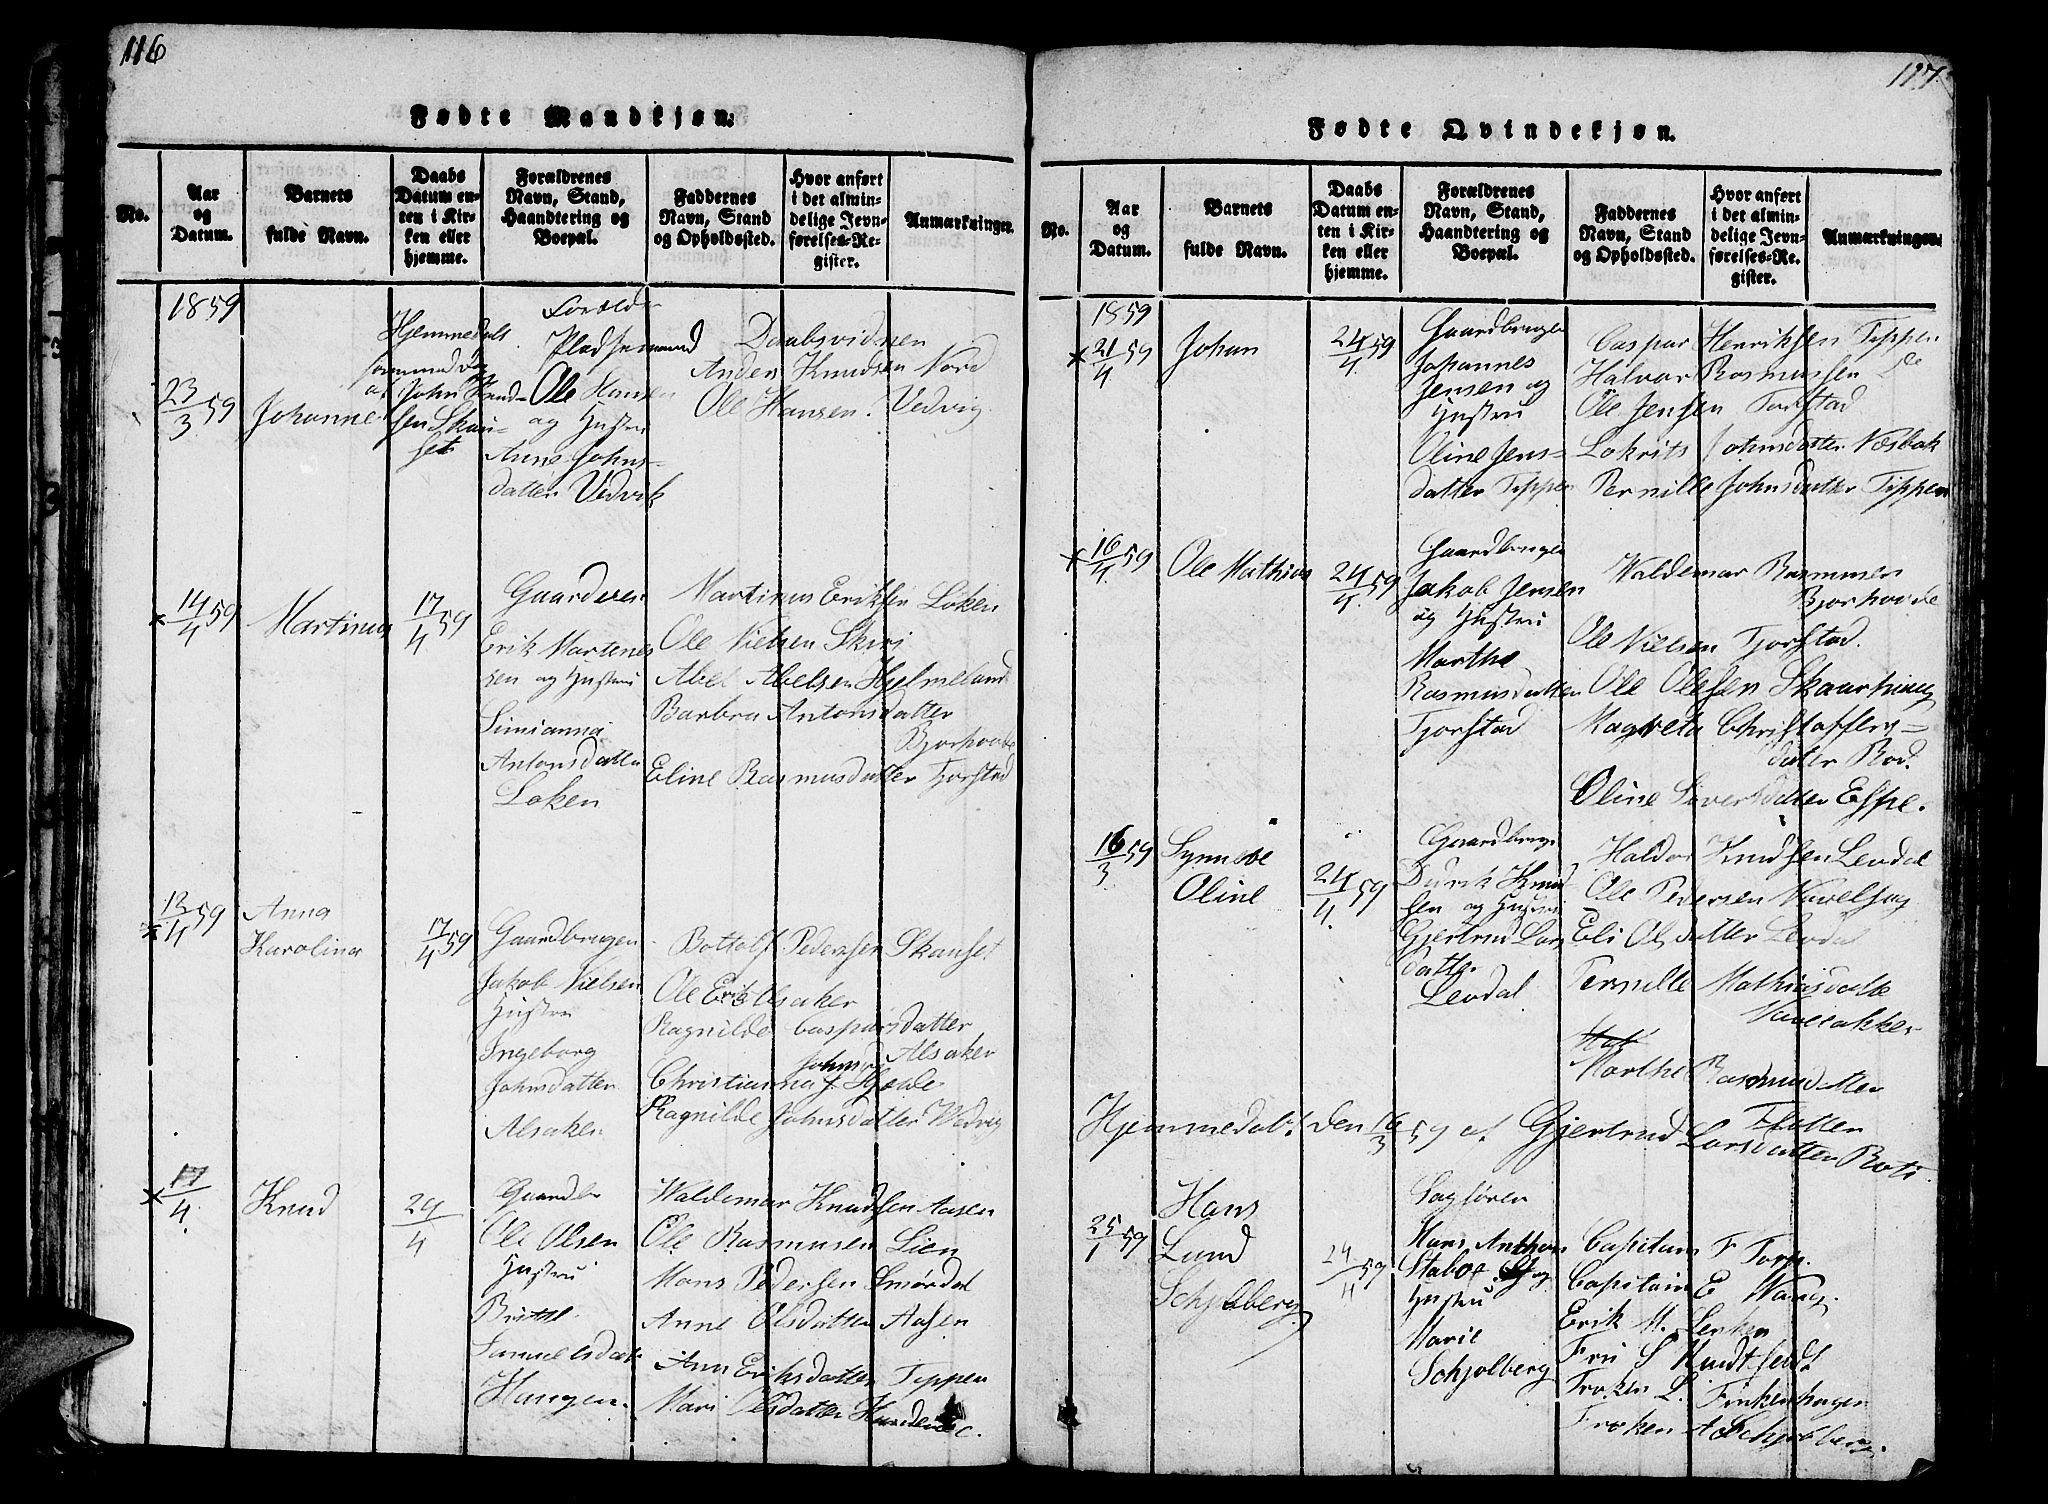 116
Fødte Mandkjøn.
No.
Aar og Datum.
Barnets fulde Navn.
Daabs Datum enten i Kirken eller hjemme.
Forældrenes Navn, Stand, Haandtering og Boepæl.
Faddernes Navn, Stand og Opholdssted.
Hvor anført i det almindelige Jevnførelses-Register.
Anmærkninger.
1859
23/3 59
Johanne
Hjemmedøbt
af John Knud-
sen Skan-
set
Pladsemand
Ole Hansen
og Hustru
Anne Johns-
datter Vedvik
Daabsvidnen
Anders Knudsen Nord
Ole Hansen. Vedvig
x 14/4 59
Martinus
17/4 59
Gaarderen
Erik Martenes
sen og Hustru
Simianna
Antonsdatter
Løken
Martinus Eriksen Løken
Ole Nielsen Skiri
Abel Abelsen Hjelmeland
Barbra Antonsdatter
Bjorhovde
Eline Rasmusdatter Tjorstad
x 12/4 59
Anna
Karolina
17/4 59
Gaardbrugen
Jakob Nielsen
Hustru
Ingeborg
Johnsdatter
Alsaker
Bottolf Pedersen Skanset
Ole Erik Alsaker
Ragnilde Caspársdatter
Alsaker
Christianna Johnsd Hjelde
Ragnilde Johnsdatter Wedvig
x 17/4
Knud
24/4
Gaardbr
Ole Olsen
Hustru
Britte
Samuelsdatt
Haugen
Waldemar Knudsen Aasen
Ole Rasmusen Lien
Mons Pedersen Smørdal
Anne Olsdatter Aasen
Ann Eriksdatter Tippen
Mari Olsdatter
117.
Fødte Qvindekjøn.
No.
Aar og Datum.
Barnets fulde Navn.
Daabs Datum enten i Kirken eller hjemme.
Forældrenes Navn, Stand, Haandtering og Boepæl.
Faddernes Navn, Stand og Opholdssted.
Hvor anført i det almindelige Jevnførelses-Register.
Anmærkninger.
1859
x 21/4 59
Johan
24/4 59
Gaardbruger
Johannes
Jensen og
Hustru
Oline Jens-
datter Tippen
Caspar Henriksen Tippen
Halvor Rasmussen do
Ole Jensen Torstad
Lokrits Johnsdatter Næsbak
Pernille Johnsdatter Tippen
x 16/4 59
Ole Mathias
24/4 59
Gaardbruger
Jakob Jensen
og Hustru
Marthe
Rasmusdatter
Tjorstad
Waldemar Rasmusen
Bjorhovde
Ole Nielsen Tjorstad.
Ole Olesen Skaarhaug
Magreta Christoffers-
datter Rød.
Oline Siversdatter Espe.
16/3 59
Synneve
Oline
24/4 59
Gaardbruge
Durik Knud
sen og Hustru
Gjertrud Lars
datter
Levdal
Haldor Knudsen Levdal
Ole Pedersen
Eli Olsdatter Levdal
Pernille Mathiasdatte
Navelsakker
Marthe Rasmusdatter
Hjemmedøbt den 16/3 59 af Gjertrud Larsdatter
25/1 59
Hans
Lund
Schjølberg
24/4 59
Sagfören
Hans Anthon
Staboe og
Hustru
Marie
Schjølberg
Capitain F Torp.
Capitain E Wang.
Erik M. Lenken
Fru S Kundtsendt
Frøken L. Finkenhagen
Frøken A Schjølberg.